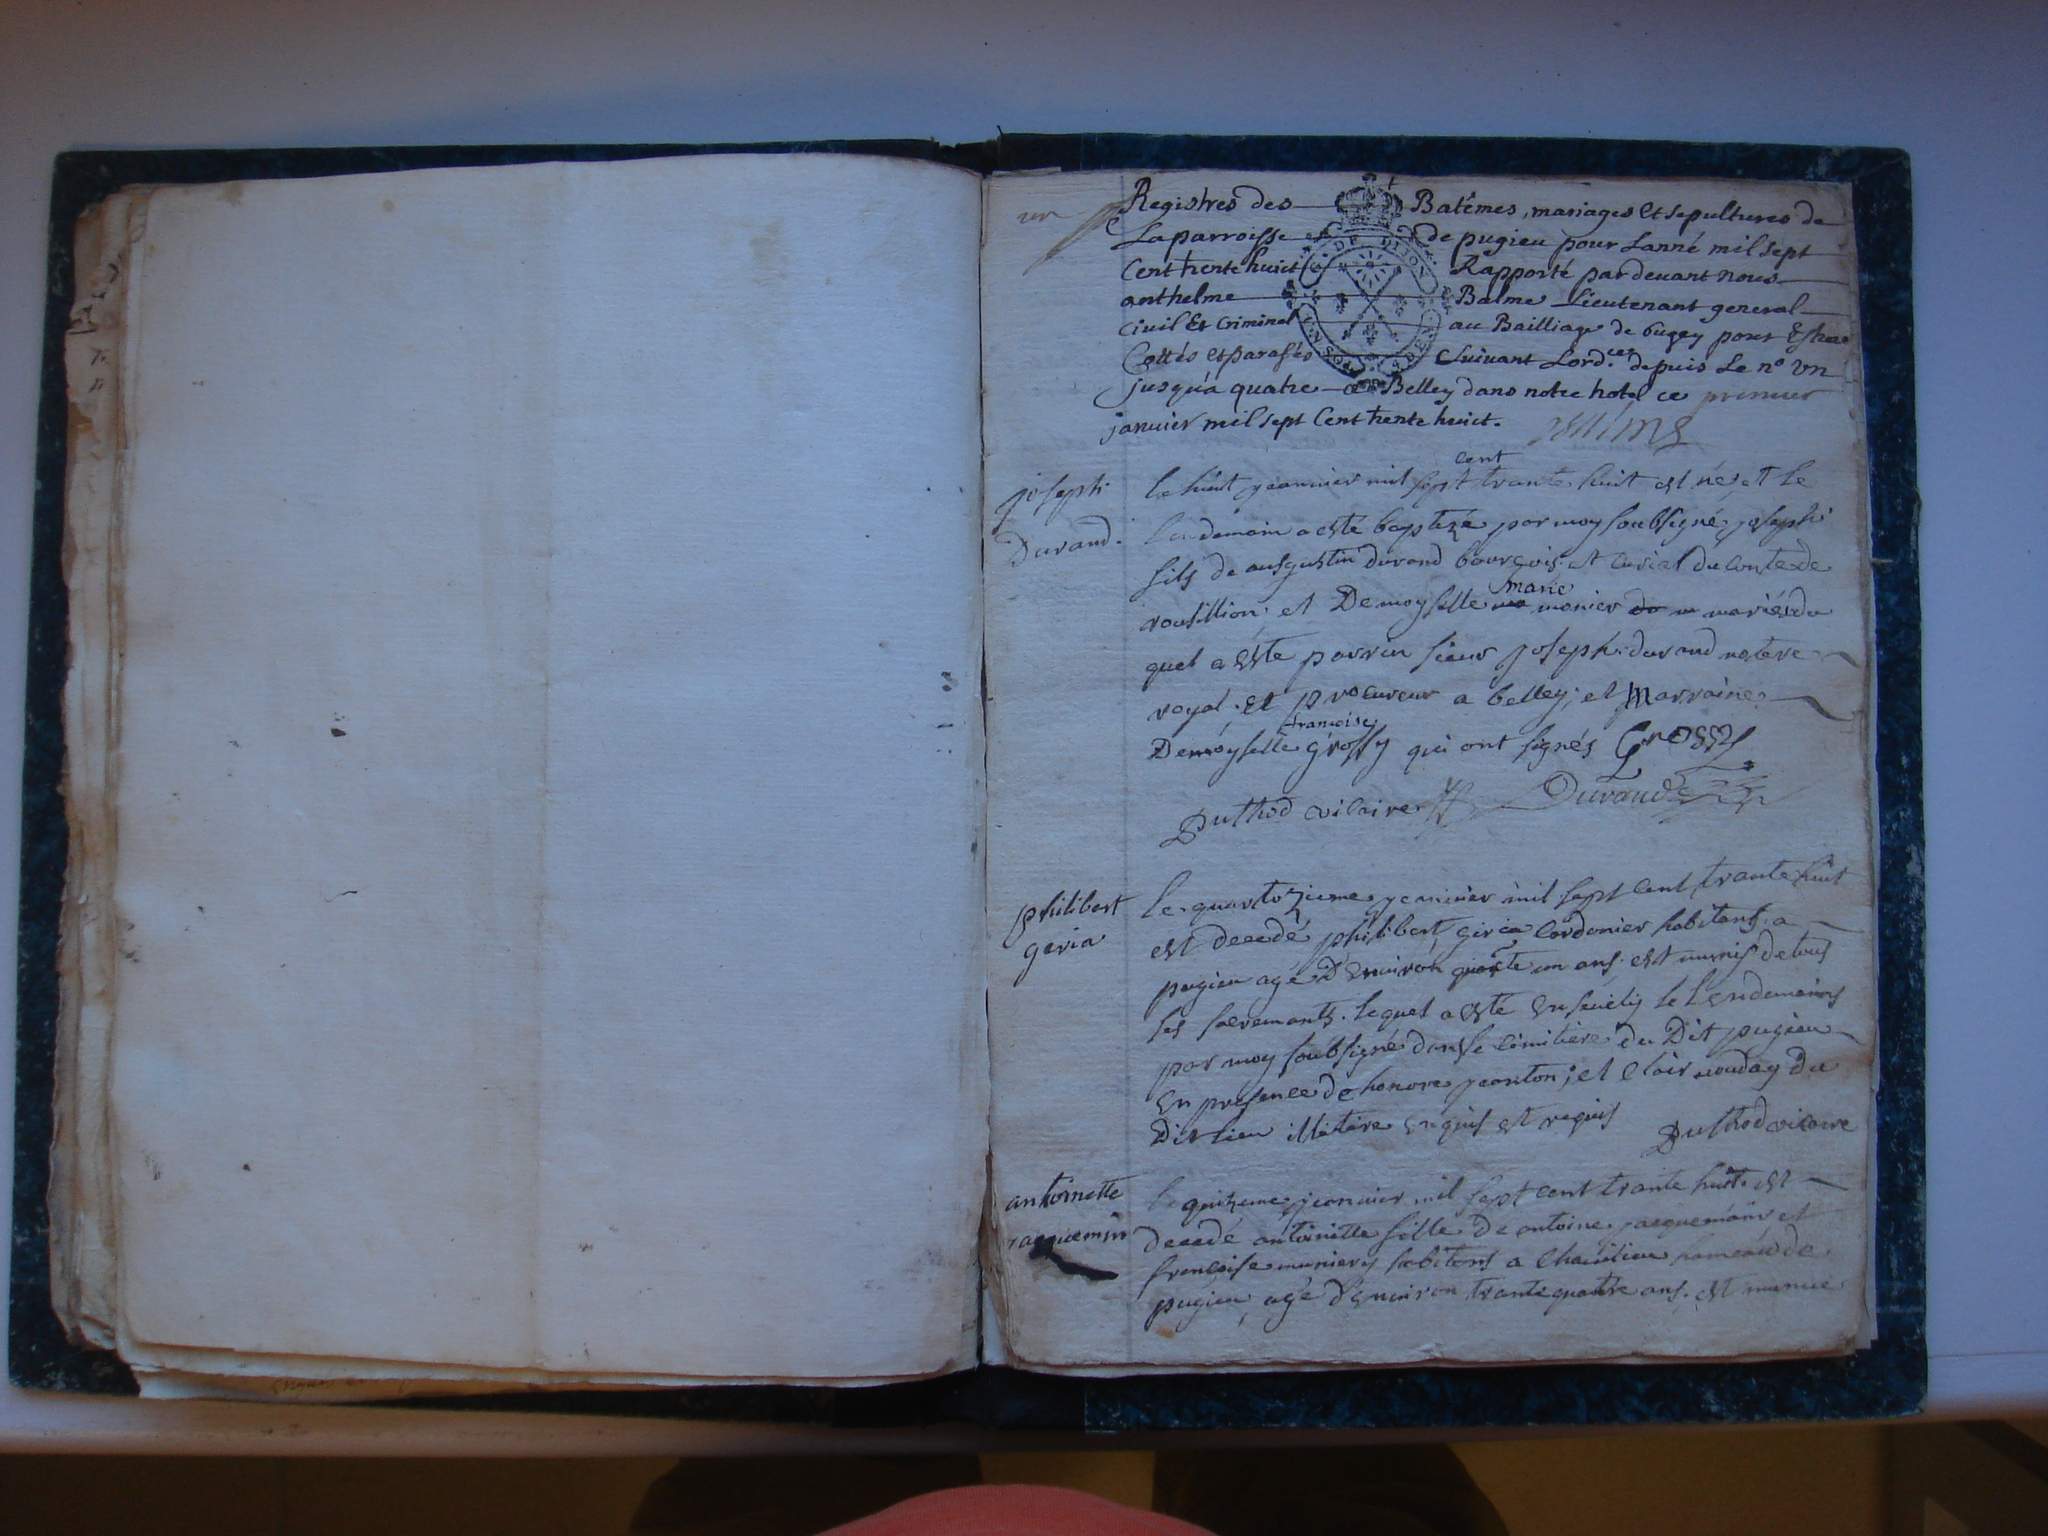 un
Registres des Batêmes, mariages et sepultures de
La parroisse de pugieu pour Lanné mil sept
Cent trente huict Rapporté pardevant nous
anthelme Balme Lieutenant general
Civil Et Criminel au Bailliage de bugey pour Estre
Cottés et parafés Suivant Lord.ce depuis Le n.o Un
jusqu'a quatre a Belley dans notre hotel ce premier
janvier mil sept Cent trente huict.
DE DIJON
joseph
Durand.
le huit jeanvier mil sept cent trante huit est né et le
lendemain a esté baptizé par moy soubsigné joseph
fils de ausgustin durand bourgois et curial du conte de
rousillion et Demoyselle marie monier mariés du
quel a esté parrin sieur joseph durand notere
royal et procureur a belley; et Marraine
Demoyselle francoise grossy qui ont signés Grossy
Duthod vicaire Durand
philibert
geria
le quartozieme jeanvier mil sept cent trante huit
est decedé philibert giria cordonier habitant a
pugieu agé D'environ quarte un ans est munis de tous
ses sacremants. lequel a esté Ensevely le Lendemains
par moy soubsigné dans le cimitiere du Dit pugieu
En presence de honore jeanton; et clair du
Dit lieu illitere Enquis est requis Duthod vicaire
antoinette
jacquemin
le quinzeme jeanvier mil sept cent trante huit est
decedé antoinette fille de antoine jacquemin et
francoise muniery habitans a Chavilieu hameau de
pugieu agé D'environ trante quattre ans. est munie